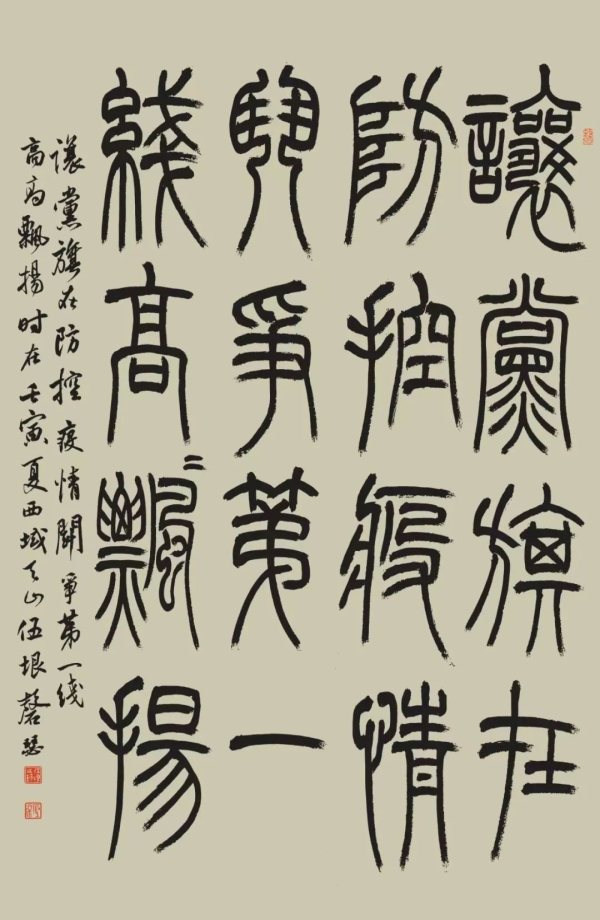 讓黨旗在
防控疫情
鬥爭第一
綫高〻飄揚
讓黨旗在防控疫情鬬爭第一綫
高高飄揚时在壬寅夏西域天山伍垠磬瑟